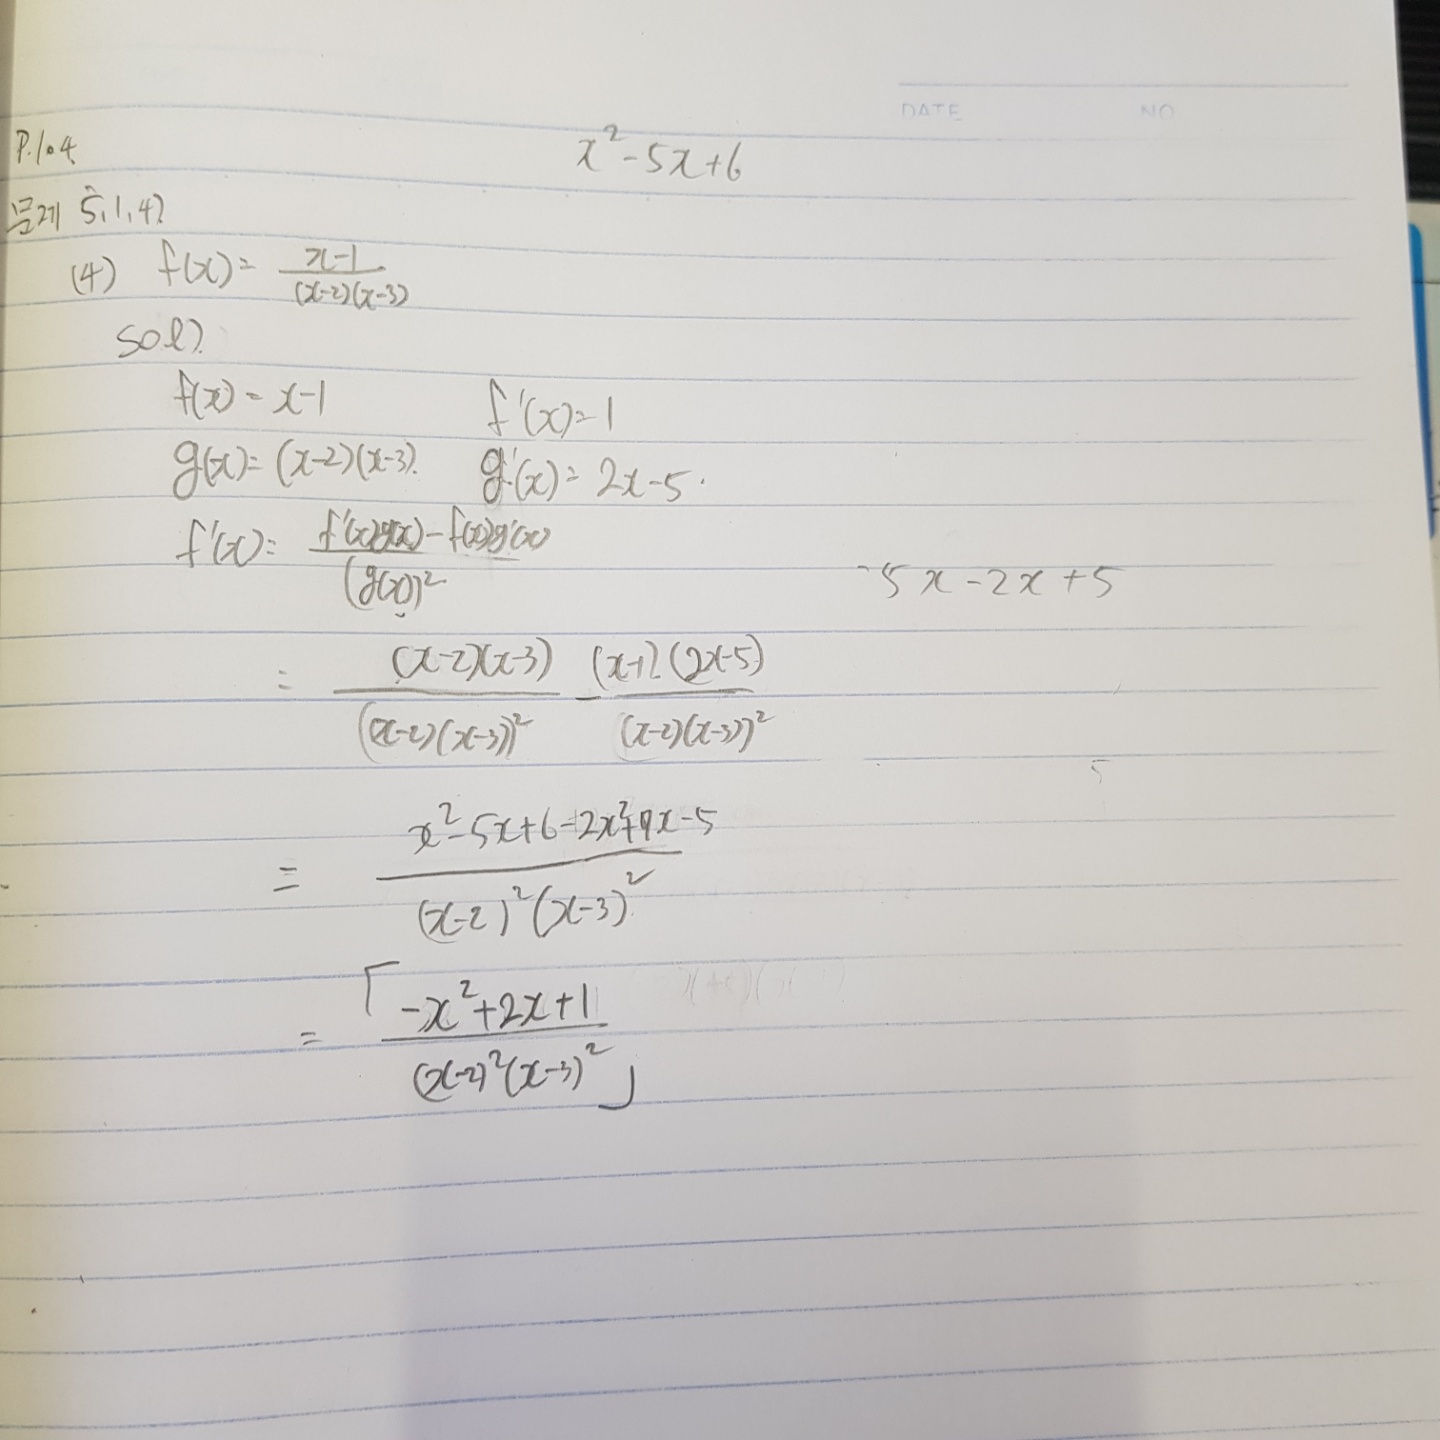 DATE NO
P.104
x²-5x+6
문제 5.1.4)
(4) f(x)= (x-1)/((x-2)(x-3))
sol).
f(x)=x-1 f'(x)=1
g(x)=(x-2)(x-3). g'(x)=2x-5.
f'(x)= (f'(x)g(x)-f(x)g'(x))/(g(x))²
-5x-2x+5
= (x-2)(x-3)/((x-2)(x-3))² - (x-1)(2x-5)/((x-2)(x-3))²
5
= (x²-5x+6-2x²+7x-5)/((x-2)²(x-3)²)
= 「(-x²+2x+1)/((x-2)²(x-3)²)」